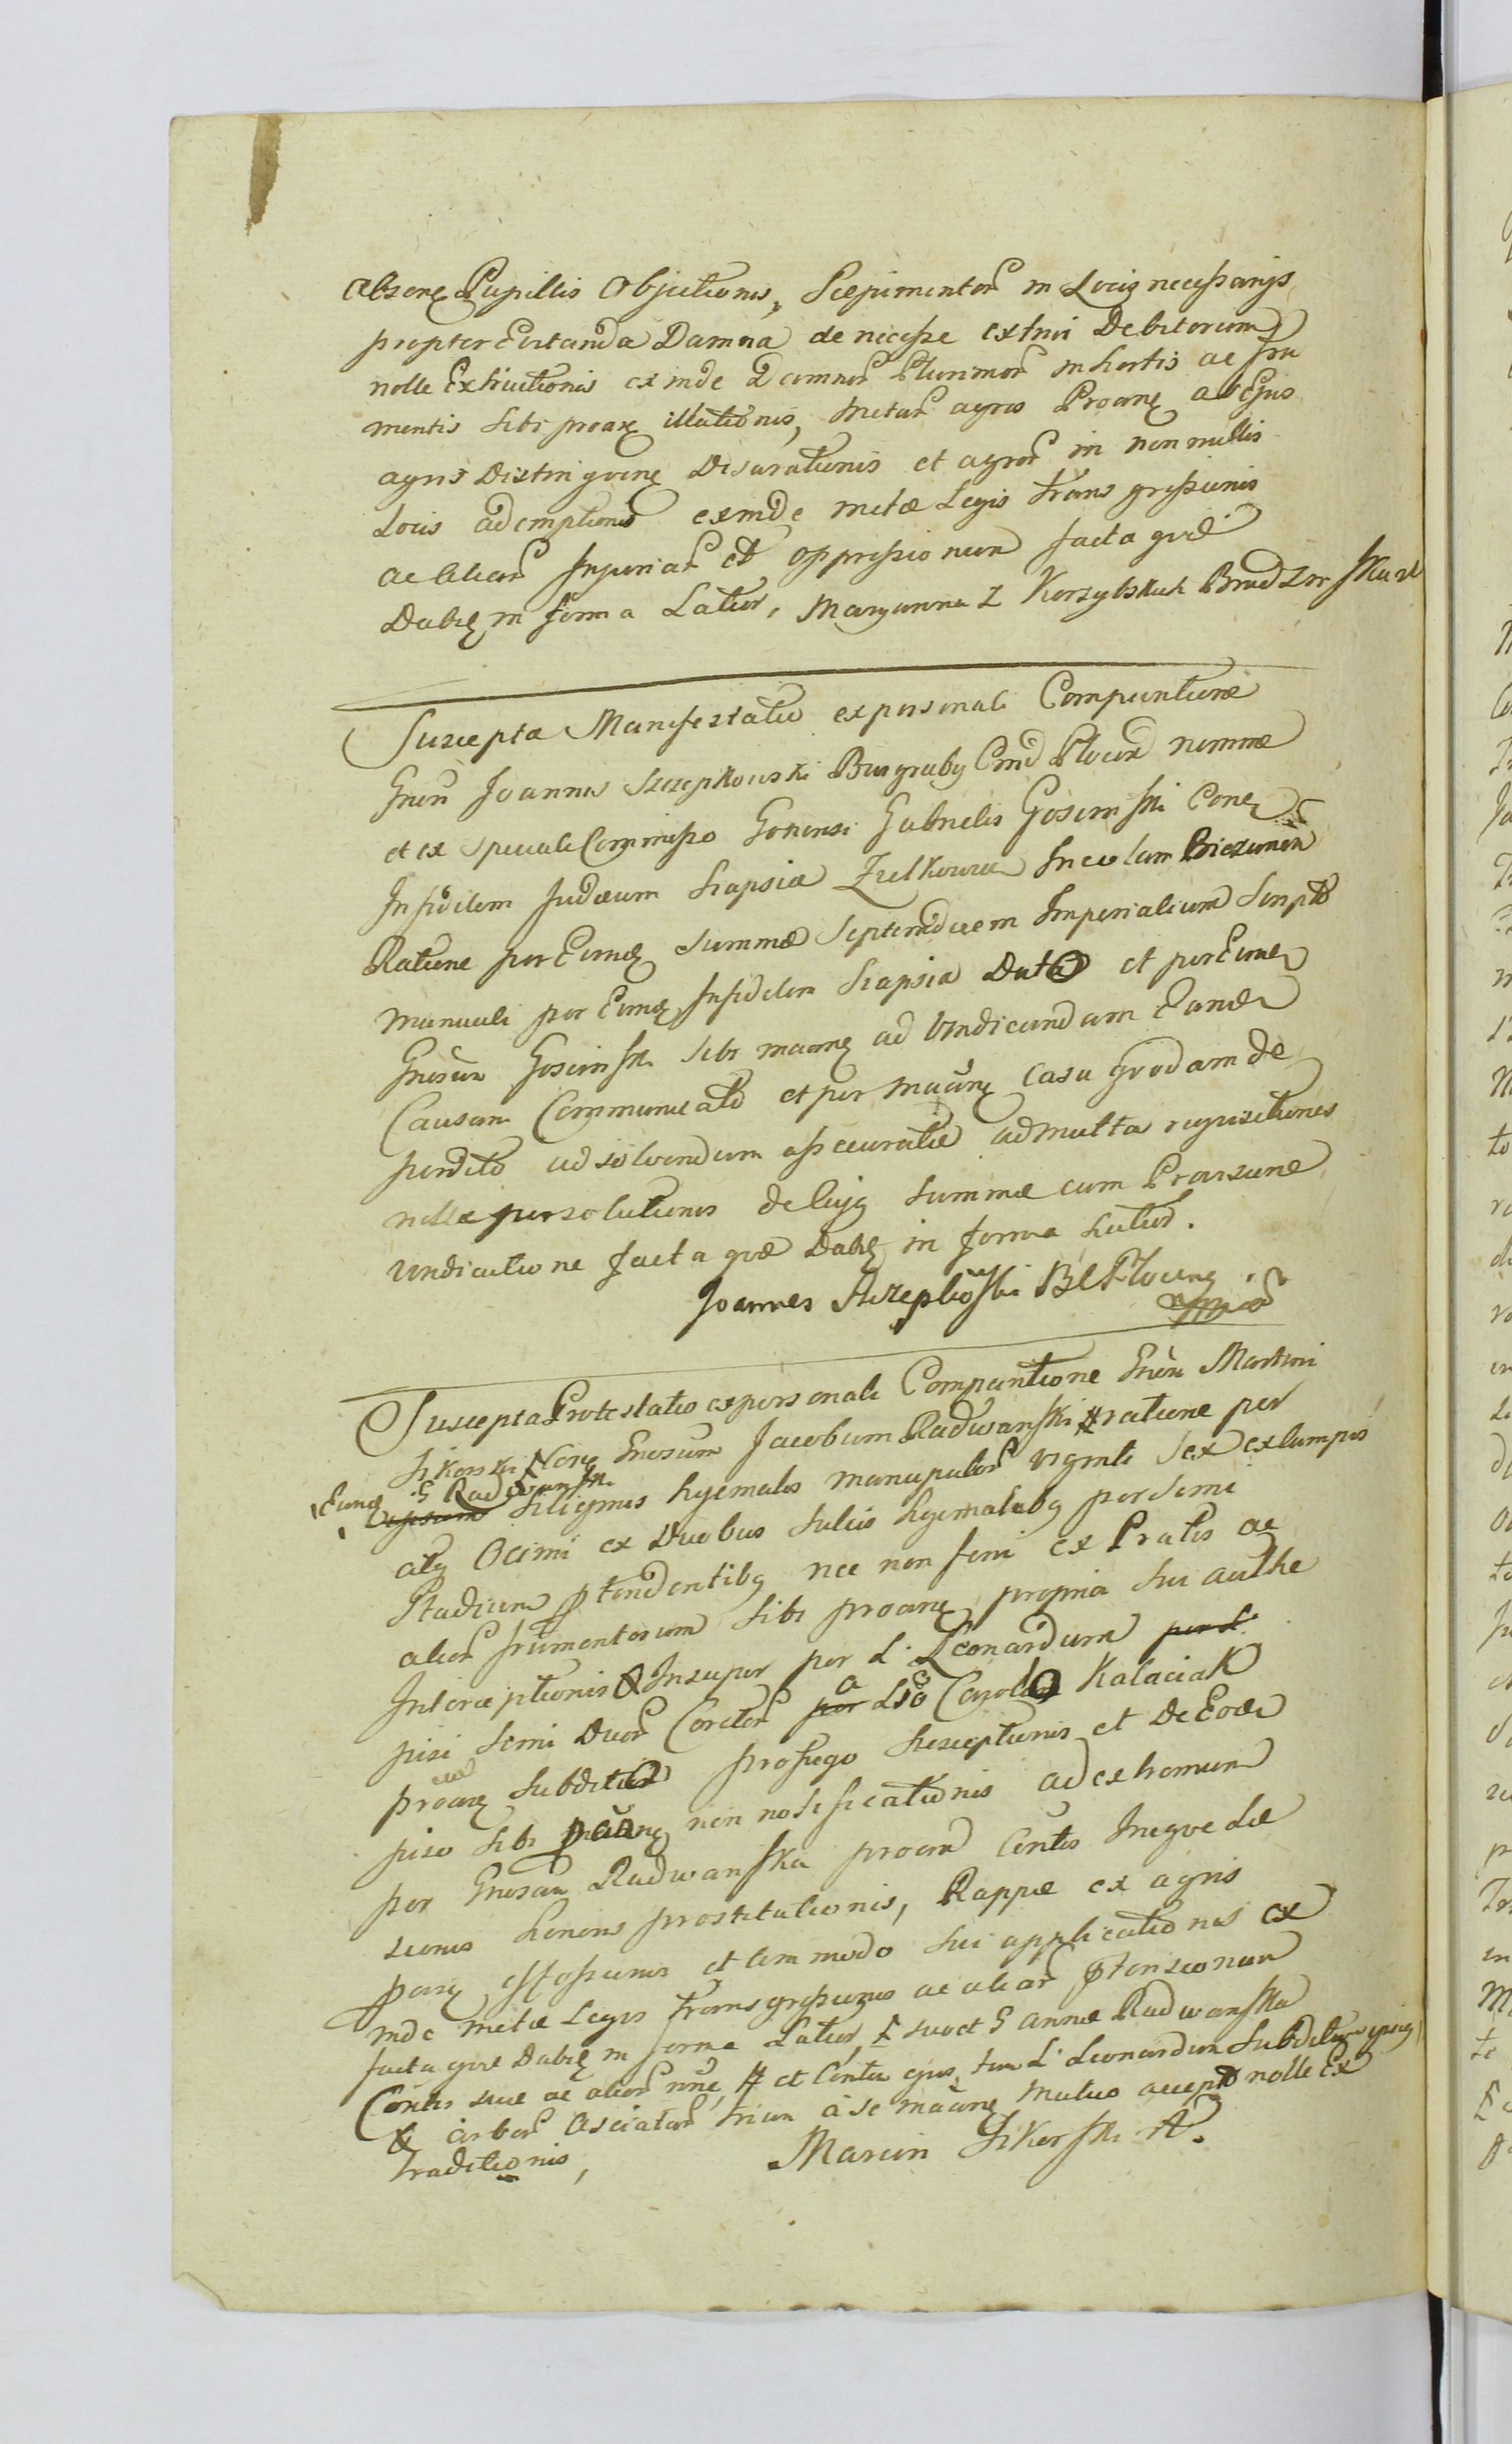 absens Pupillis Objectionis, Sepimentor in Locis necessarijs
propter Evitanda Damna de necesse extrui Debitorum
nolle Extructionis exinde Damnor Plurimor in hortis ac fru
mentis sibi proane illationis, metar agros Proane ab Ejus
agris Distingvene Disarationis et agror in non nullis
Locis ademptionis exinde metæ Legis trans gressionis
ac aliar Injuriar et oppressionum facta qvæ
Dabit in forma Latior, Maryanna z Korzybskich
Suscepta Manifestatio ex personali Comparitione
Gnesi Joannis Szczepkowski Burgraby Plocen nomine
et ex speciali Commisso Gnerosi Gabrielis Goscimski Cone
Infidelem Judæum Szapsia Zielkowicz Incolam Biezunen
Ratione per Eunde summæ Septemdecem Imperialium Scripto
manuali per Eunde Infidelem Szapsia Dato et per Eunde
Gnosum Goscimski sibi maane ad Vindicandum Eande
Causam Communicato et per maane casu qvodam de
perdito ad solvendum assecuratæ ad multa reqvisitiones
nolle persolutionis de Cujq summæ cum Provisione
vindicatione facta qvæ Dabit in forma Latiori.
Joannes Szczepkowski B C Plocens
Suscepta Protestatio ex personali Comparitione Gnesi Martini
Sikorski None Gnosum Jacobum Radwanski # ratione per
Eunde G Radwanski
Siliginis hyemalis manipulor viginti sex exlumpis
atq Ocimi ex Duobus Sulcis hyemalibq per Semi
Stadium ptendentibq nec non feni ex Pratis ac
alior frumentorum sibi proane propria sui authe
Interceptionis Insuper per L. Leonardum per L
pisi semi Duor Coretor per a Lso Carolo Kalaciak
proane Subdito profugo Susceptionis et De Eode
piso sibi maane non notificationis ad extremum
per Gnosam Radwanska proane Contis Ineqve Læ
sionis honoris prostitutionis, Rappæ ex agris
pane effossionis et commodo sui applicationis ex
inde metæ Legis transgressionis ac aliar ptensionum
facta qvæ Dabit in forma Latiori, suo et G Annæ Radwanska
Contis suæ ac alior nne, # et Contra ejus, tum L. Leonardum Subditum ipsiq
& arbor Asciatar trium à se maane mutuo accepto nolle Ex
traditionis,
Marcin Sikorski